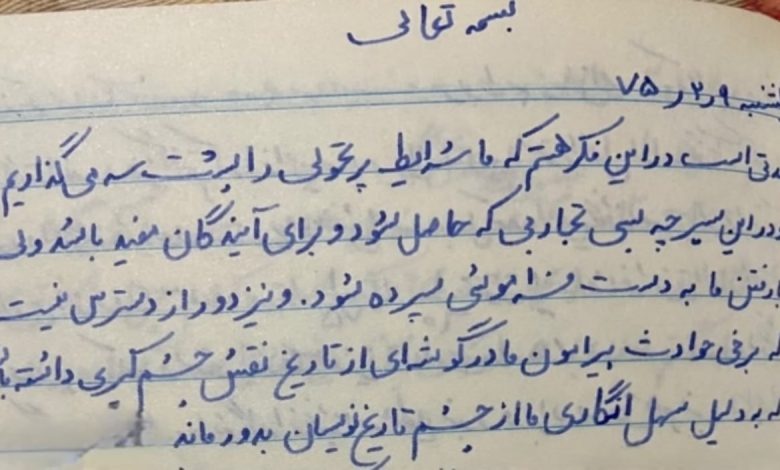 بسمه تعالی
شنبه ۷۵٫۲٫۹
مدتی است در این فکر هستم که ما شرایط پر تحولی را پشت سر می گذاریم
و در این سیر چه بسی تجاربی که حاصل شود و برای آیندگان مفید باشد ولی
با رفتن ما به دست فراموشی سپرده شود. و نیز دور از دسترس نیست
که برخی حوادث پیرامون ما در گوشه ای از تاریخ نقش چشم گیری داشته با
که به دلیل سهل انگاری ما از چشم تاریخ نویسان بدور ماند